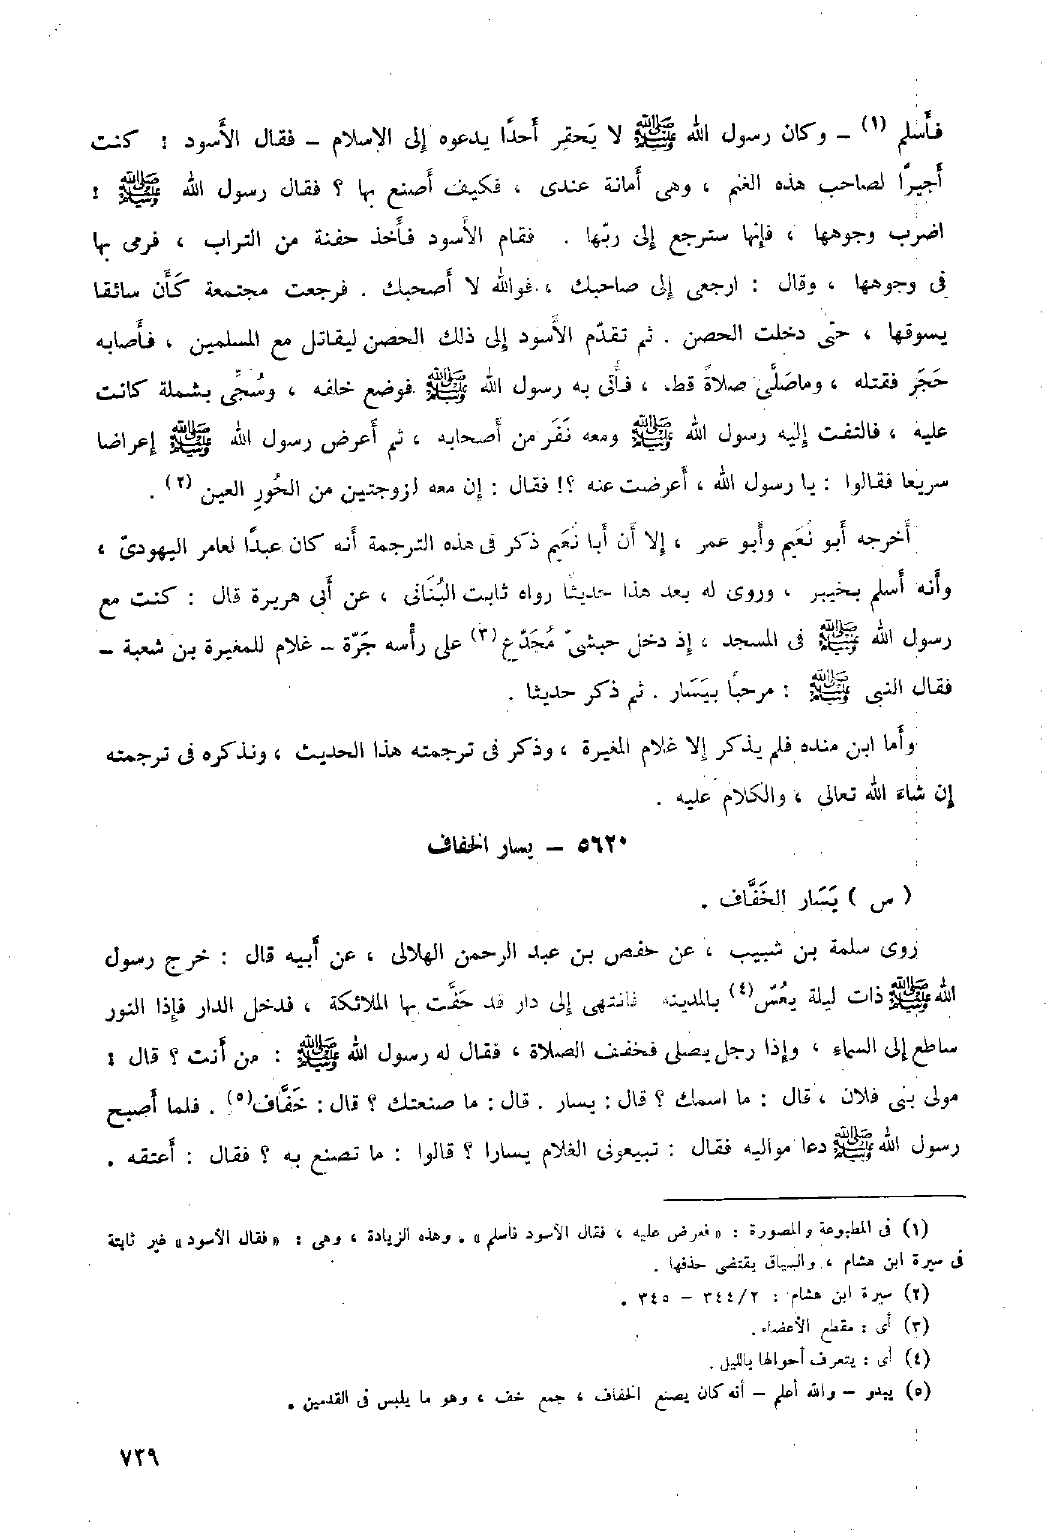 فأسلم (١) – وكان رسول الله ﷺ لا يَحقِر أحدًا يدعوه إلى الإسلام – فقال الأسود : كنت
أجيرًا لصاحب هذه الغنم ، وهى أمانة عندى ، فكيف أصنع بها ؟ فقال رسول الله ﷺ :
اضرب وجوهها ، فإنها سترجع إلى ربّها . فقام الأسود فأخذ حفنة من التراب ، فرمى بها
فى وجوهها ، وقال : ارجعى إلى صاحبك ، فوالله لا أصحبك . فرجعت مجتمعة كَأَن سائقا
يسوقها ، حتى دخلت الحصن . ثم تقدّم الأسود إلى ذلك الحصن ليقاتل مع المسلمين ، فأصابه
حَجَر فقتله ، وماصَلَّى صلاةً قط ، فأتى به رسول الله ﷺ فوضع خلفه ، وسُجِّى بشملة كانت
عليه ، فالتفت إليه رسول الله ﷺ ومعه نَفَر من أصحابه ، ثم أعرض رسول الله ﷺ إعراضا
سريعا فقالوا : يا رسول الله ، أعرضت عنه ؟! فقال : إن معه لزوجتين من الحُورِ العين (٢) .
أخرجه أبو نُعَيم وأبو عمر ، إلا أن أبا نُعَيم ذكر فى هذه الترجمة أنه كان عبدًا لعامر اليهودىّ ،
وأنه أسلم بخيبر ، وروى له بعد هذا حديثًا رواه ثابت البُنَانى ، عن أبى هريرة قال : كنت مع
رسول الله ﷺ فى المسجد ، إذ دخل حبشىّ مُجَدّع (٣) على رأسه جَرّة – غلام للمغيرة بن شعبة –
فقال النبى ﷺ : مرحبًا بيَسَار . ثم ذكر حديثا .
وأما ابن منده فلم يذكر إلا غلام المغيرة ، وذكر فى ترجمته هذا الحديث ، ونذكره فى ترجمته
إن شاء الله تعالى ، والكلام عليه .
٥٦٢٠ – يسار الخفاف
( س ) يَسَار الخَفَّاف .
روى سلمة بن شبيب ، عن حفص بن عبد الرحمن الهلالى ، عن أبيه قال : خرج رسول
الله ﷺ ذات ليلة يعُسّ (٤) بالمدينة فانتهى إلى دار قد حَفَّت بها الملائكة ، فدخل الدار فإذا النور
ساطع إلى السماء ، وإذا رجل يصلى فخفف الصلاة ، فقال له رسول الله ﷺ : من أنت ؟ قال :
مولى بنى فلان ، قال : ما اسمك ؟ قال : يسار . قال : ما صنعتك ؟ قال : خَفَّاف (٥) . فلما أصبح
رسول الله ﷺ دعا مواليه فقال : تبيعونى الغلام يسارا ؟ قالوا : ما تصنع به ؟ فقال : أعتقه .
(١) فى المطبوعة والمصورة : « فعرض عليه ، فقال الأسود فأسلم » . وهذه الزيادة ، وهى : « فقال الأسود » غير ثابتة
فى سيرة ابن هشام ، والسياق يقتضى حذفها .
(٢) سيرة ابن هشام : ٣٤٤/٢ – ٣٤٥ .
(٣) أى : مقطع الأعضاء .
(٤) أى : يتعرف أحوالها بالليل .
(٥) يبدو – والله أعلم – أنه كان يصنع الخفاف ، جمع خف ، وهو ما يلبس فى القدمين .
٧٣٩